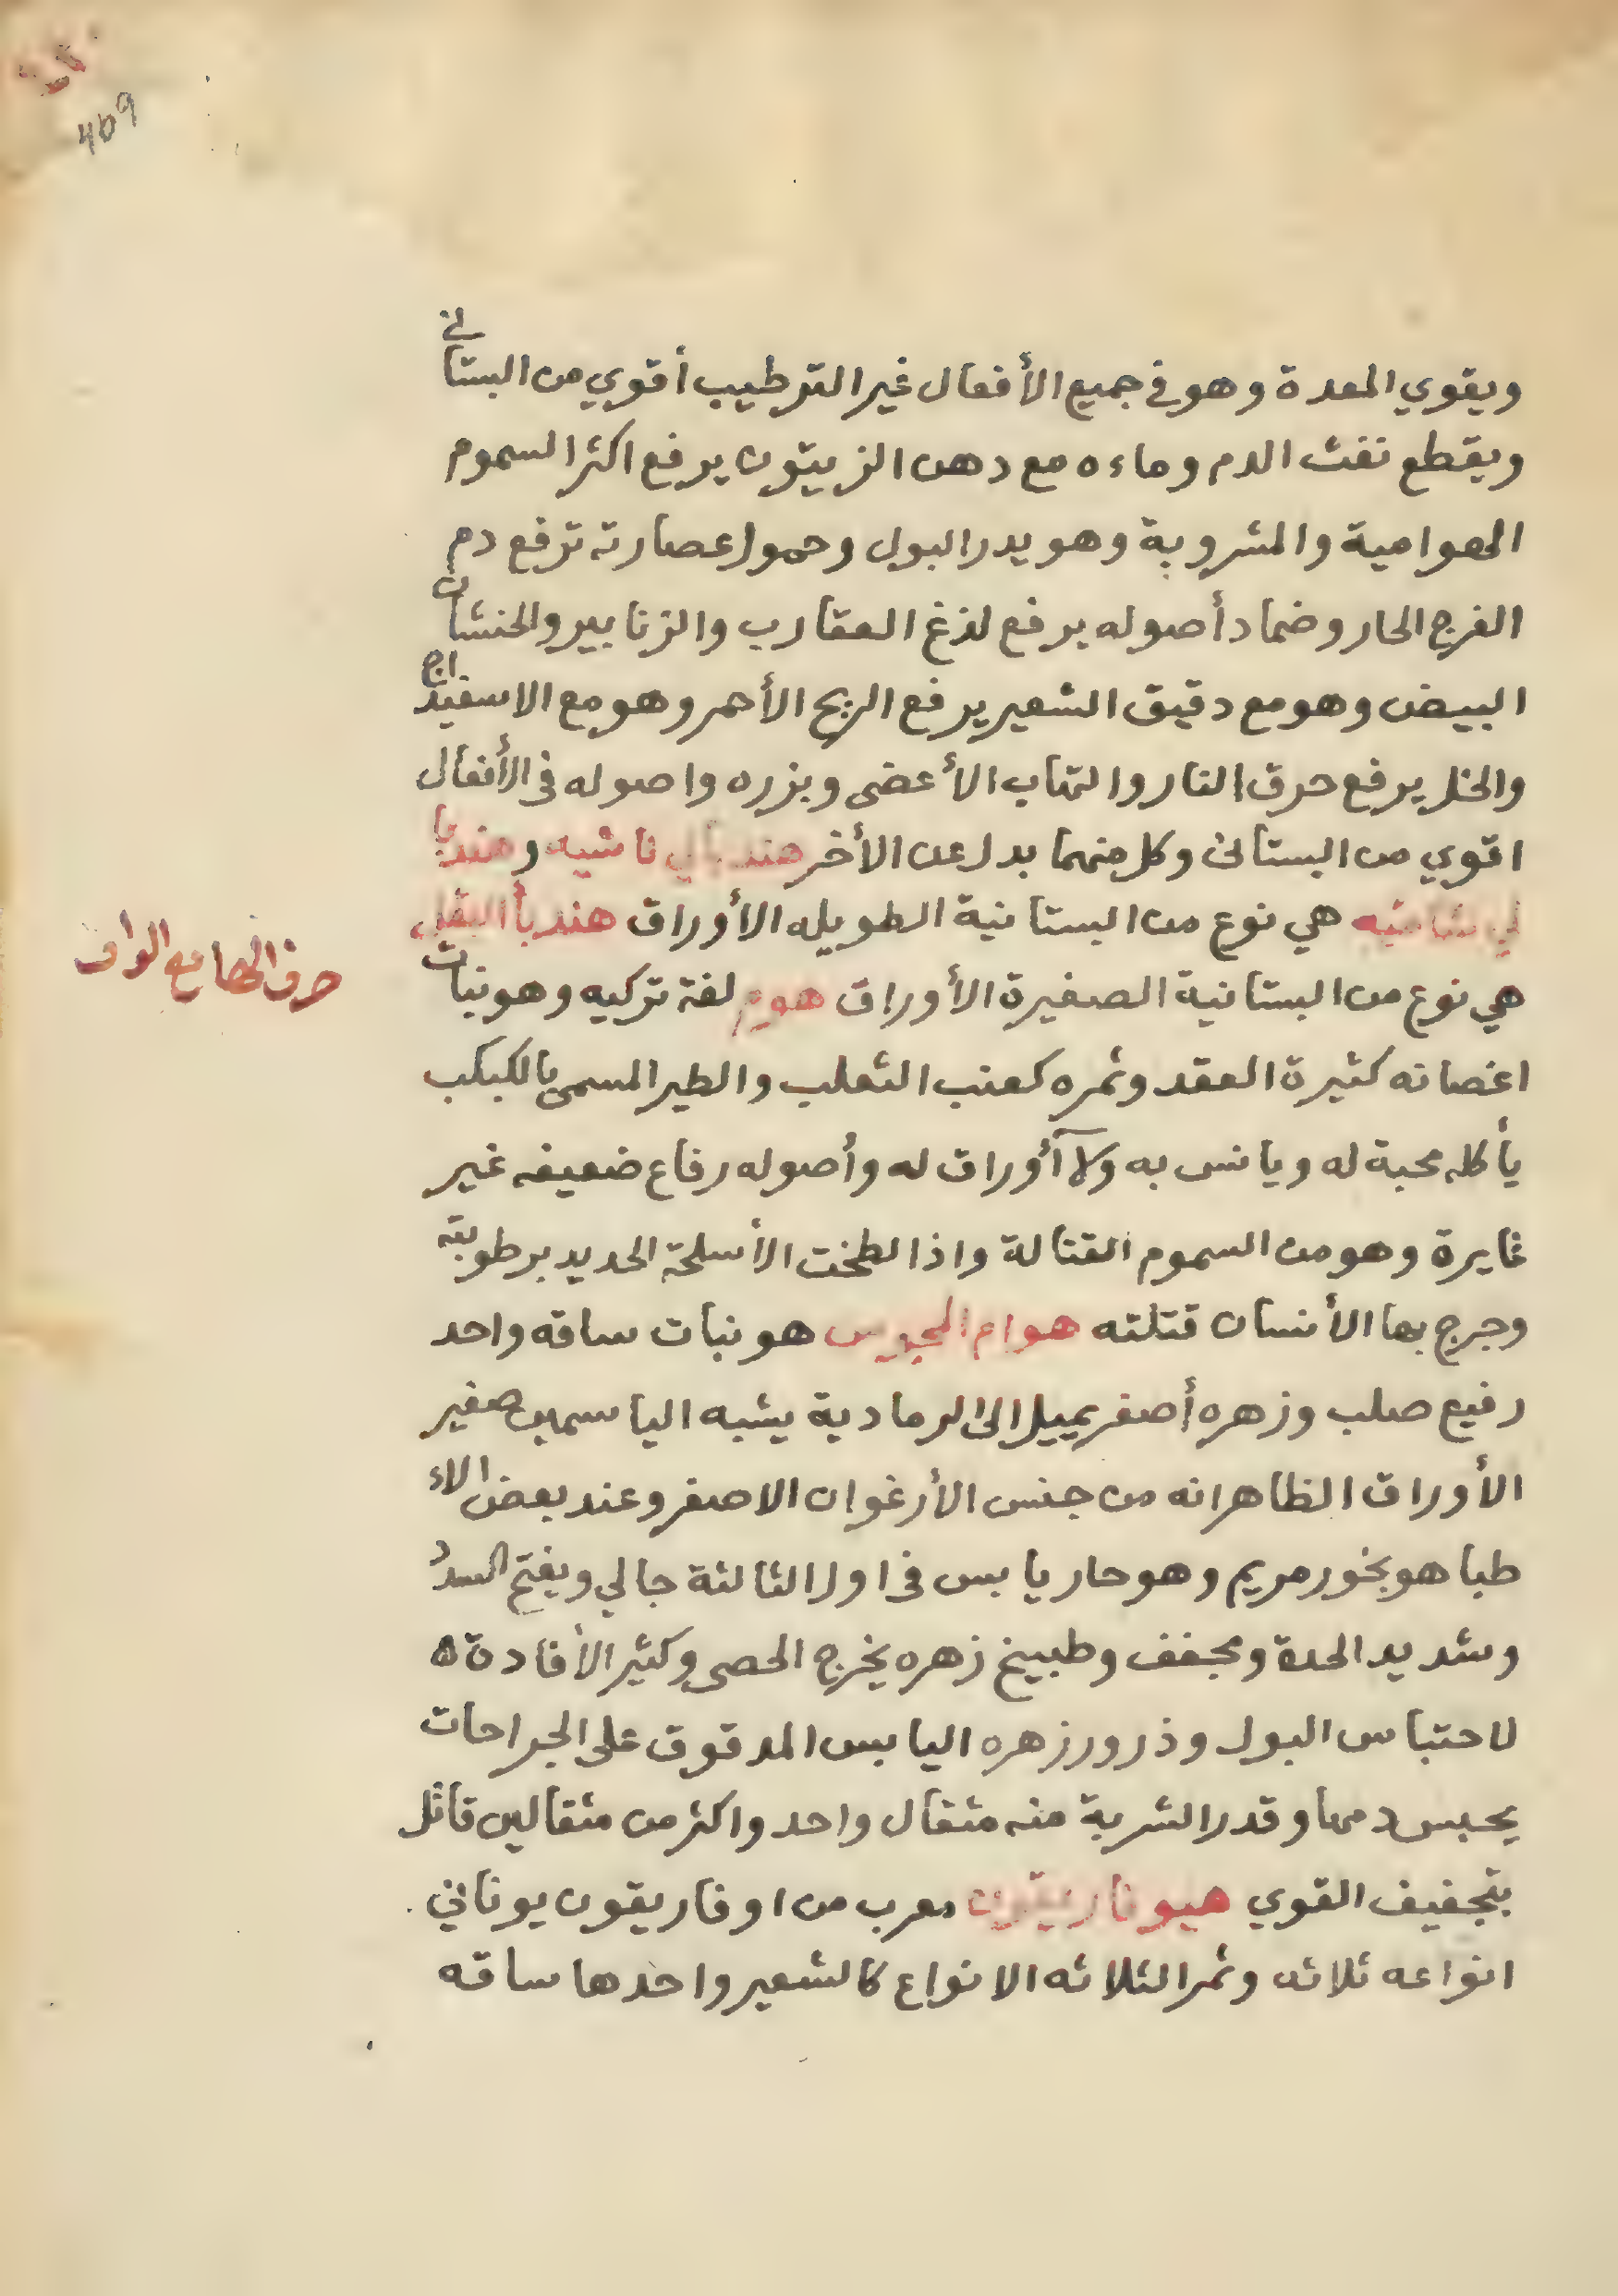 469
ويقوي المعدة وهو في جميع الأفعال غير الترطيب أقوي من البستاني
ويقطع نفث الدم وماءه مع دهن الزيتون يرفع اكثر السموم
الهوامية والمشروبة وهو يدر البول وحمول عصارته ترفع دم
الفرج الحار وضماد أصوله يرفع لذغ العقارب والزنابير والخنشان
البيض وهو مع دقيق الشعير يرفع الريح الأحمر وهو مع الاسفيداج
والخل يرفع حرق النار والتهاب الأعضى وبزره واصوله في الأفعال
اقوي من البستانى وكل منهما بدل عن الأخر هندبا وهندبا
هي نوع من البستانية الطويله الأوراق هندبأ البقل
حرف الها مع الواو
هي نوع من البستانية الصغيرة الأوراق هوم لغة تركيه وهو نبات
اغصانه كثيرة العقد وثمره كعنب الثعلب والطير المسمى بالكبكب
يأكله محبة له ويانس به ولا أوراق له وأصوله رفاع ضعيفه غير
غايرة وهو من السموم القتالة واذا لطخت الأسلحة الحديد برطوبته
وجرح بها الأنسان قتلته هوام المجوس هو نبات ساقه واحد
رفيع صلب وزهره أصفر يميل الى الرمادية يشبه الياسمين صغير
الأوراق الظاهر انه من جنس الأرغوان الاصفر وعند بعض الاء
طبا هو بخور مريم وهو حار يابس في اول الثالثة جالي ويفتح السدد
وشديد الحدة ومجفف وطبيخ زهره يخرج الحصى وكثير الأفادة ه
لاحتباس البول وذرور زهره اليابس المدقوق على الجراحات
يحبس دمها وقدر الشربة منه مثقال واحد واكثر من مثقالين قاتل
بتجفيف القوي هيوفاريقون معرب من اوفاريقون يوناني
انواعه ثلاثه وثمر الثلاثه الانواع كالشعير واحدها ساقه